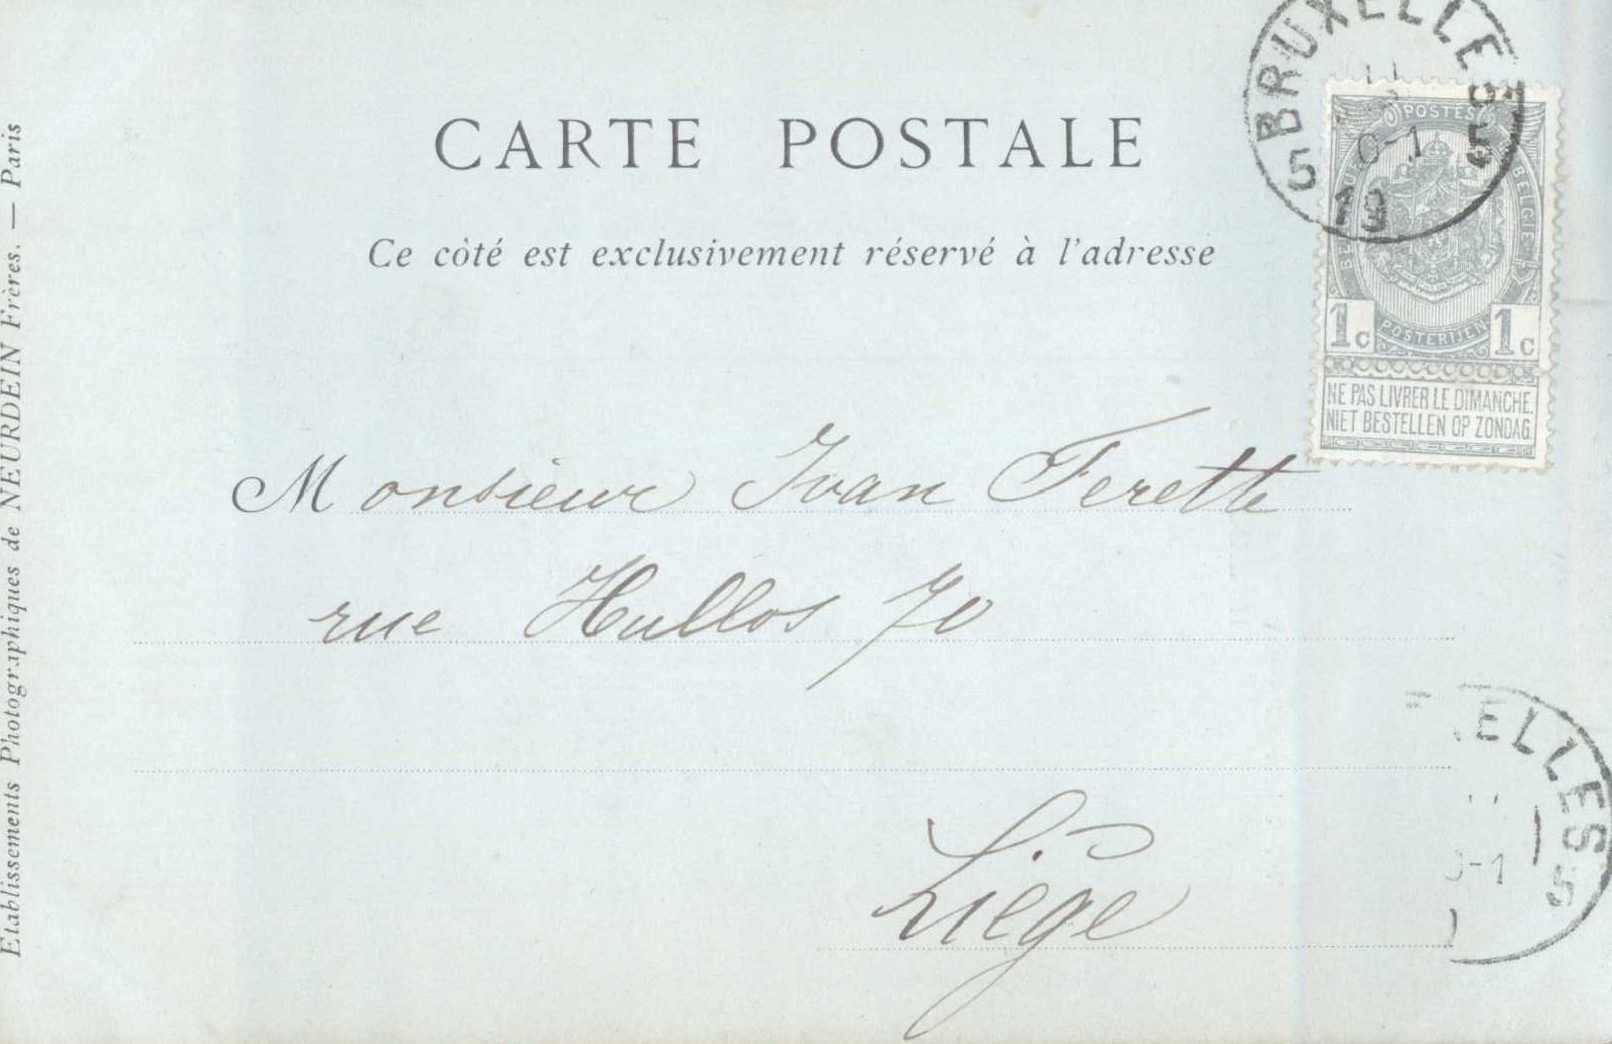 CARTE POSTALE
Ce côté est exclusivement réservé à l'adresse
BRUXELLES
5 5
0-1
19
POSTES
BELGIE
POSTERIJEN
1c 1c
NE PAS LIVRER LE DIMANCHE.
NIET BESTELLEN OP ZONDAG
Monsieur Ivan Ferette
rue Hullos 70
Liége
ELLES
5
-1
Etablissements Photographiques de NEURDEIN Frères. — Paris